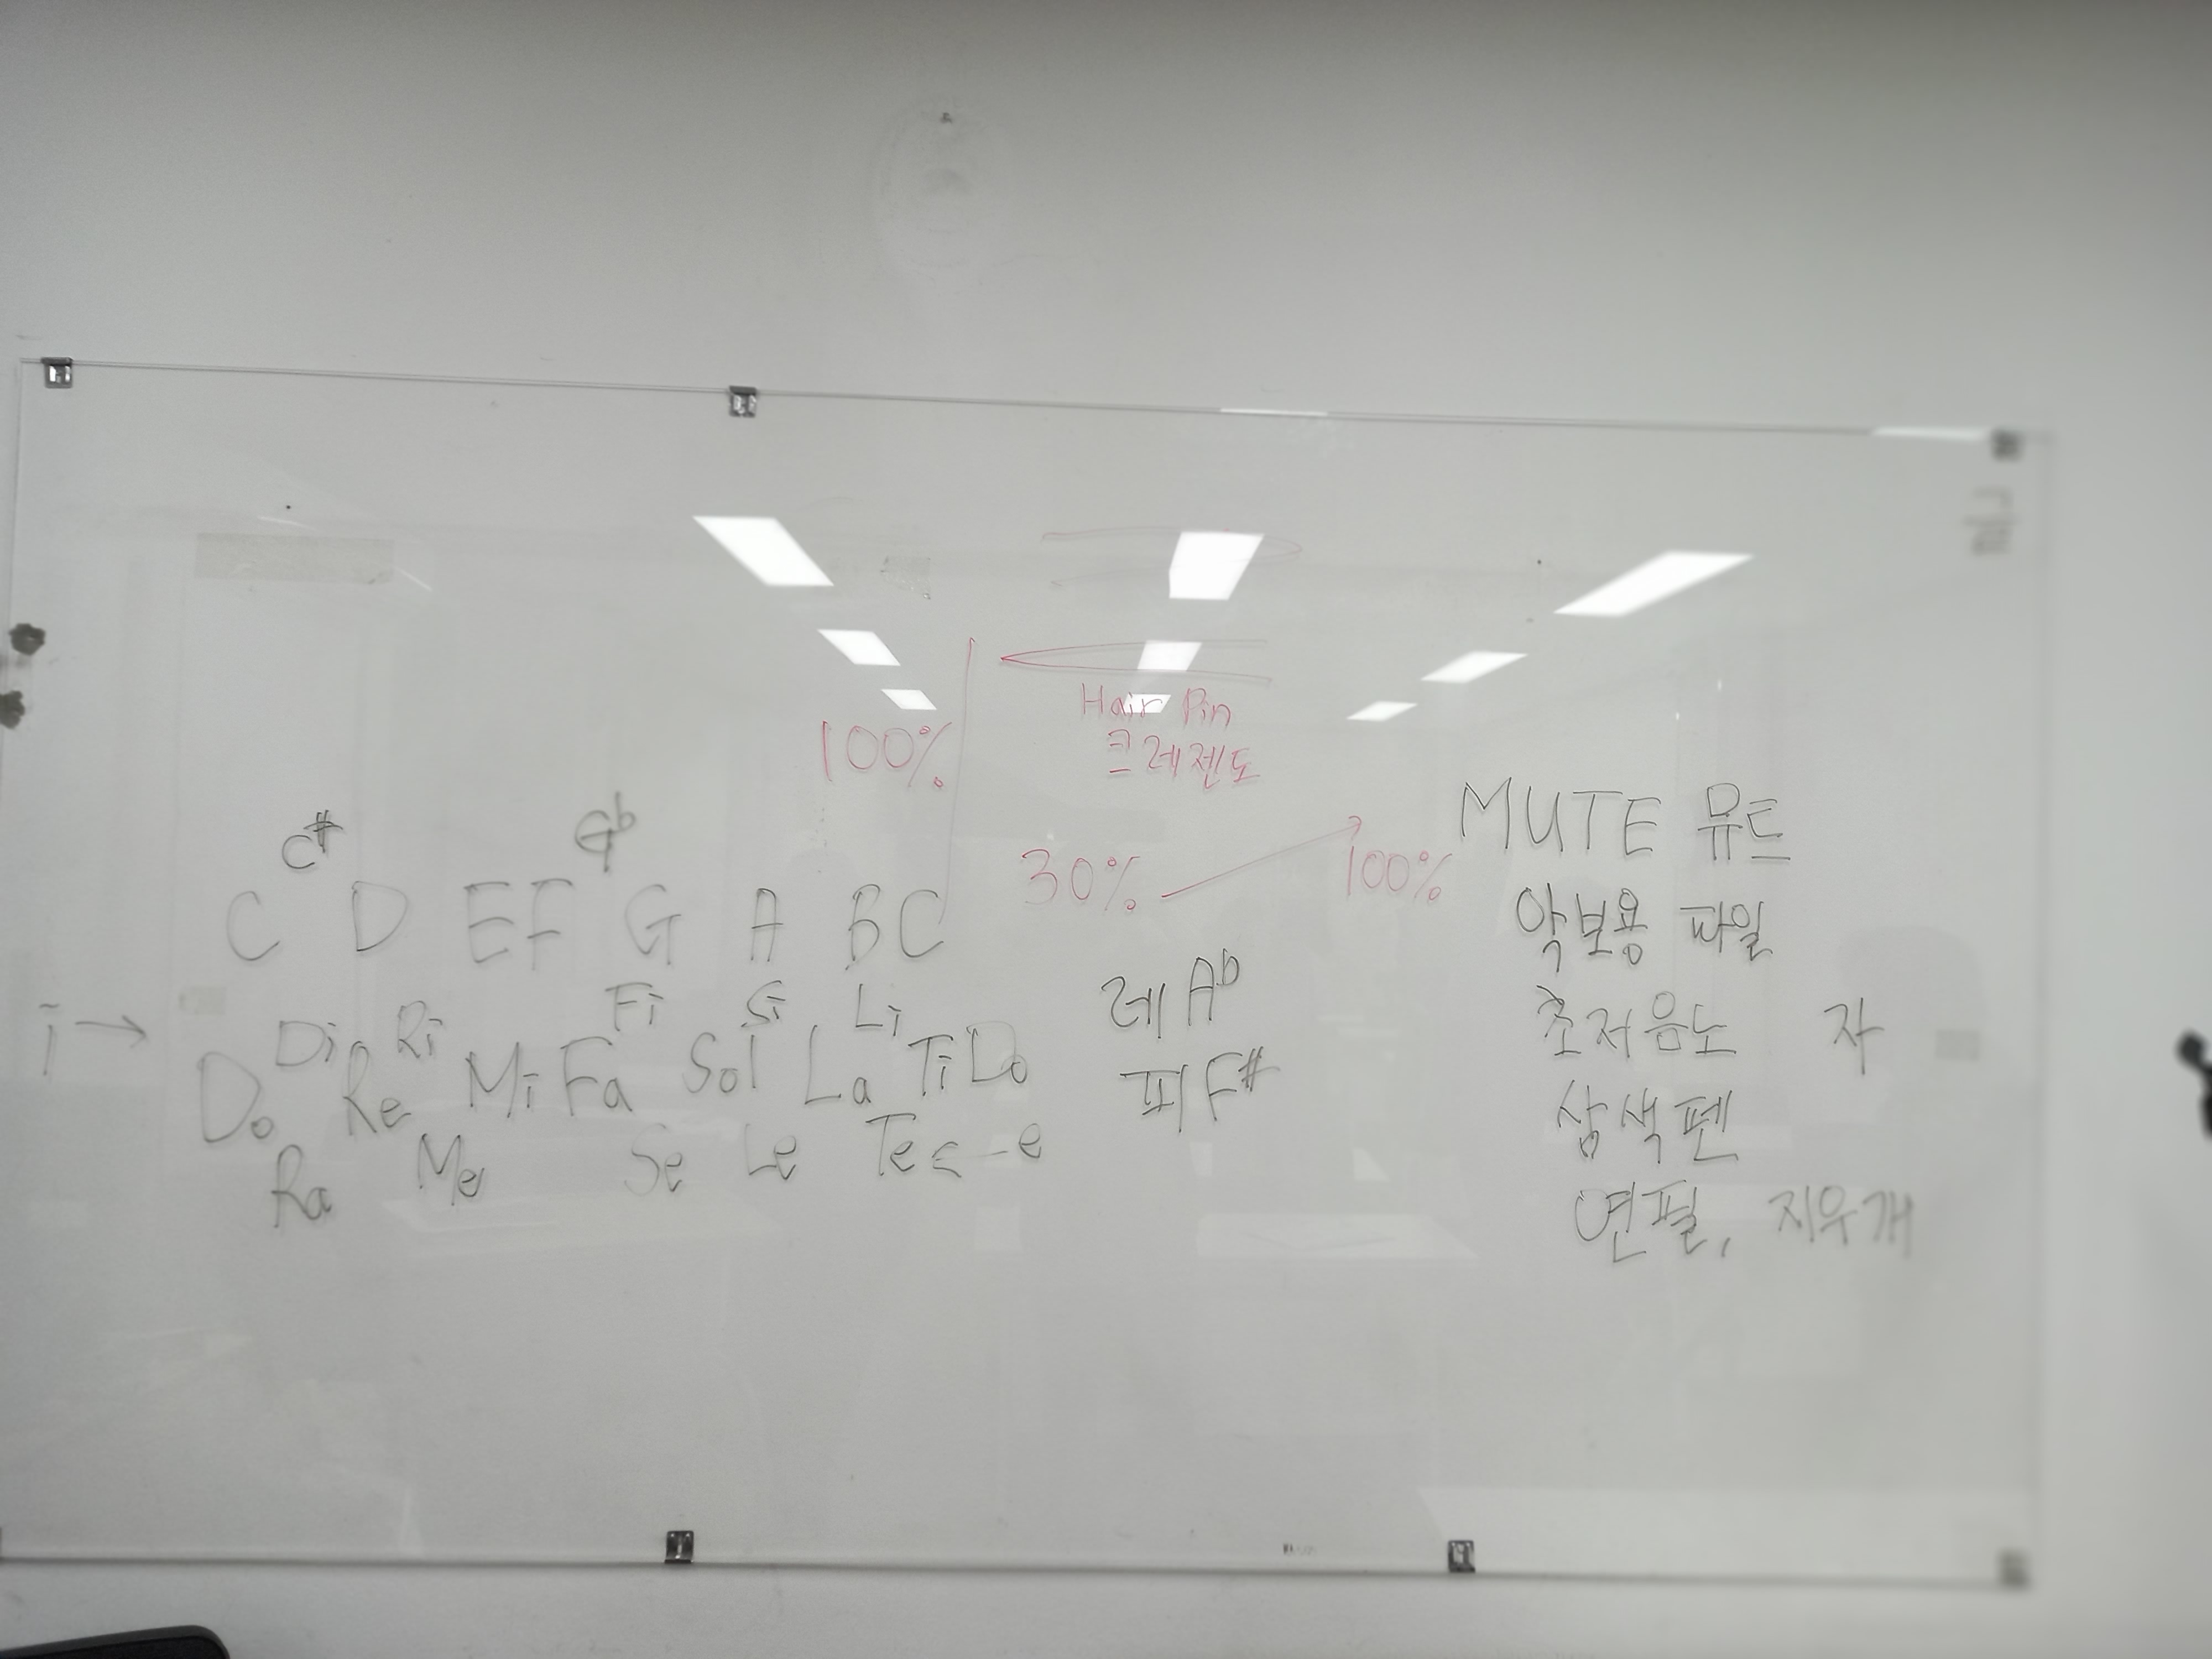 Hair Pin
크레젠도
100%
30% 100%
C# Gb
C D E F G A B C
i →
Di Ri Fi Si Li
Do Re Mi Fa Sol La Ti Do
Ra Me Se Le Te ← e
레 Ab
피 F#
MUTE 뮤트
악보용 파일
초저음노 자
삼색펜
연필, 지우개